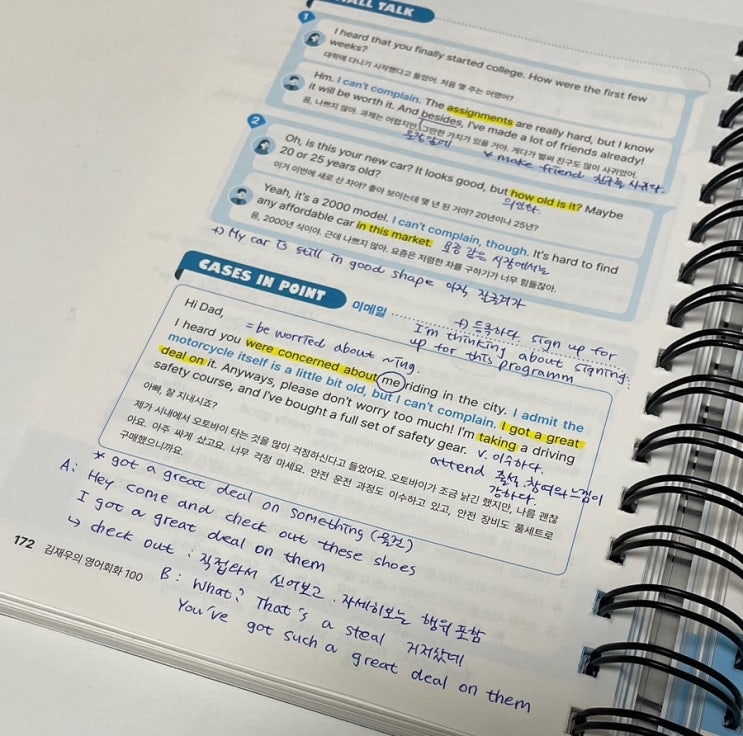 ALL TALK
1
I heard that you finally started college. How were the first few
weeks?
대학에 다니기 시작했다고 들었어. 처음 몇 주는 어땠어?
Hm. I can't complain. The assignments are really hard, but I know
it will be worth it. And besides, I've made a lot of friends already!
음, 나쁘지 않아. 과제는 어렵지만 그만한 가치가 있을 거야. 게다가 벌써 친구도 많이 사귀었어.
make friend 친구를 사귀다.
2
Oh, is this your new car? It looks good, but how old is it? Maybe
20 or 25 years old?
이거 이번에 새로 산 차야? 좋아 보이는데 몇 년 된 거야? 20년이나 25년?
Yeah, it's a 2000 model. I can't complain, though. It's hard to find
any affordable car in this market. 요즘 같은 시장에서는
응, 2000년 식이야. 근데 나쁘지 않아. 요즘은 저렴한 차를 구하기가 너무 힘들잖아.
+) My car is still in good shape 아직 잘굴러가
CASES IN POINT
이메일
+) 등록하다 sign up for
I'm thinking about signing
up for this programm
Hi Dad,
= be worried about ~ing.
I heard you were concerned about me riding in the city. I admit the
motorcycle itself is a little bit old, but I can't complain. I got a great
deal on it. Anyways, please don't worry too much! I'm taking a driving
safety course, and I've bought a full set of safety gear.
v. 이수하다.
attend 출석, 참여와 느낌이
강하다
아빠, 잘 지내시죠?
제가 시내에서 오토바이 타는 것을 많이 걱정하신다고 들었어요. 오토바이가 조금 낡긴 했지만, 나름 괜찮
아요. 아주 싸게 샀고요. 너무 걱정 마세요. 안전 운전 과정도 이수하고 있고, 안전 장비도 풀세트로
구매했으니까요.
* got a great deal on something (물건)
A: Hey come and check out these shoes
I got a great deal on them
↳ check out : 직접와서 신어보고. 자세히보는 행위 포함
B: What? That's a steal 거저샀네
You've got such a great deal on them
172 김재우의 영어회화 100